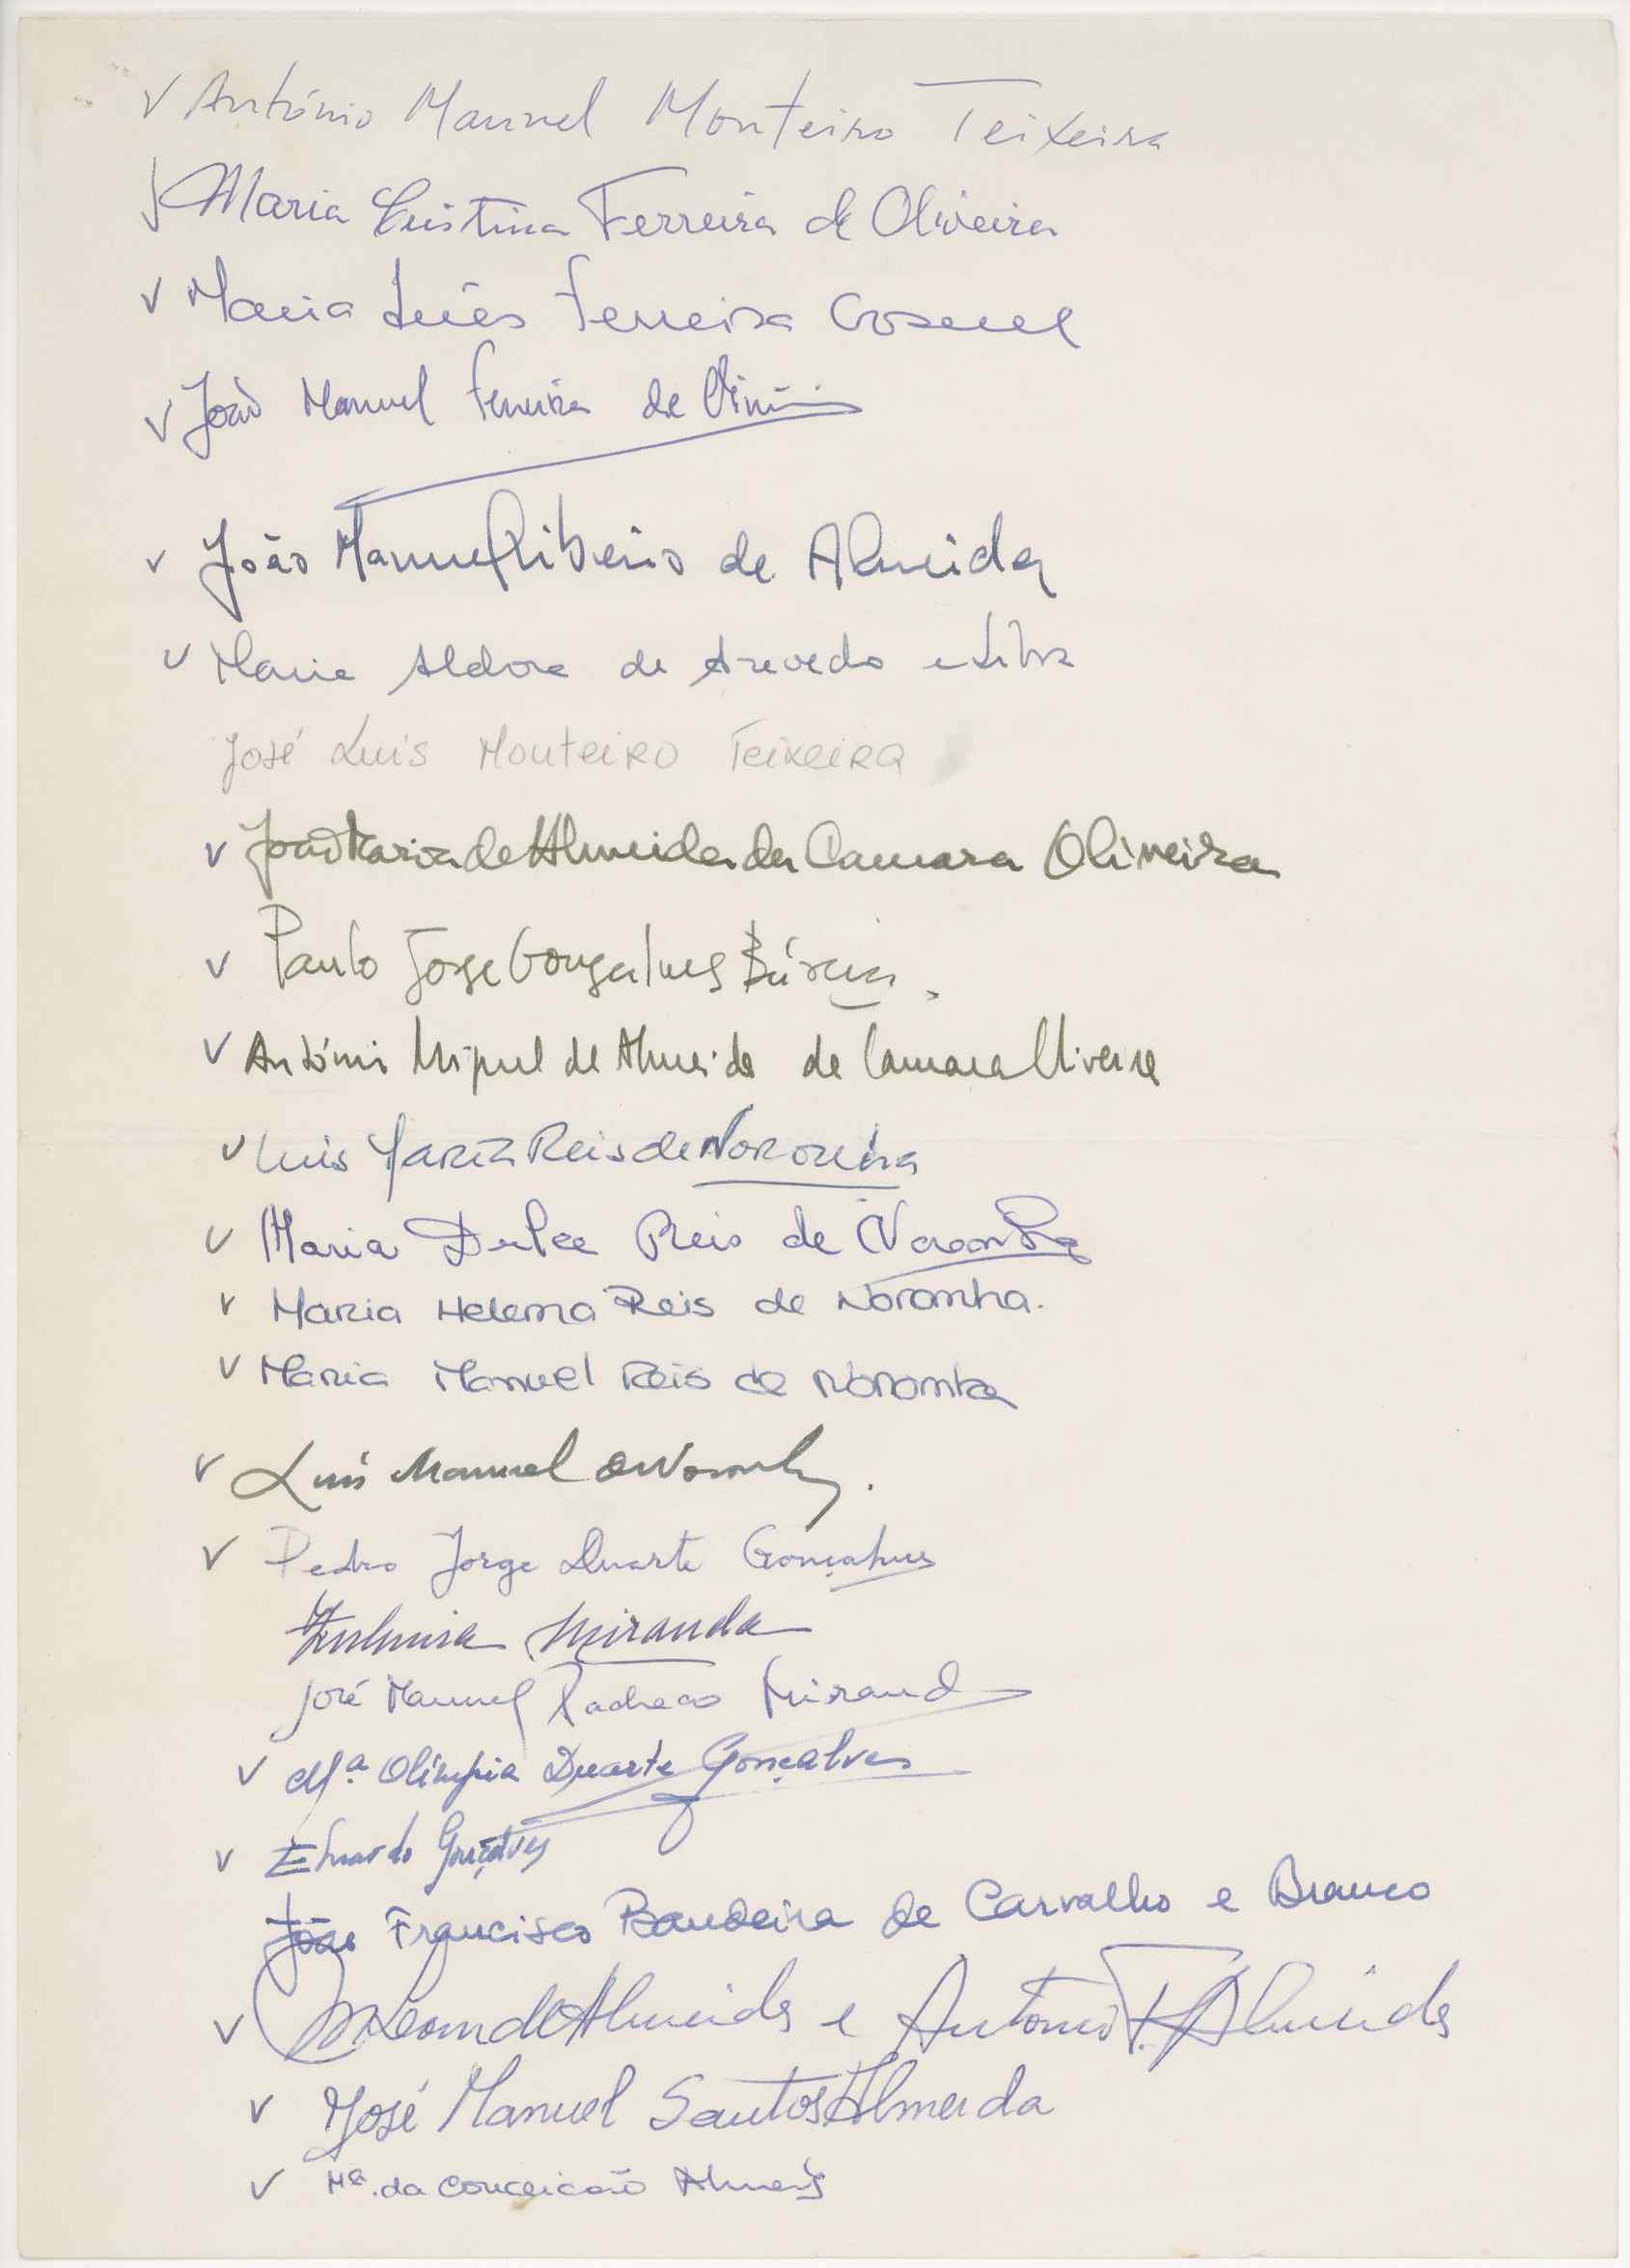 ✓ António Manuel Monteiro Teixeira
✓ Maria Cristina Ferreira de Oliveira
✓ Maria Inês Ferreira
✓ João Manuel Ferreira de
✓ João Manuel Ribeiro de Almeida
✓ Maria Aldora de Azevedo e Silva
José Luis Monteiro Teixeira
✓ João Maria de Almeida da Camara Oliveira
✓ Paulo Jorge Gonçalves
✓ António Miguel de Almeida da Camara Oliveira
✓ Luis Maria Reis de Noronha
✓ Maria Dulce Reis de Noronha
✓ Maria Helena Reis de Noronha.
✓ Maria Manuel Reis de Noronha
✓ Luís Manuel de Noronha.
✓ Pedro Jorge Duarte Gonçalves
Zulmira Miranda
José Manuel Pacheco Miranda
✓ Mª. Olímpia Duarte Gonçalves
✓ Eduardo Gonçalves
João Francisco Bandeira de Carvalho e Branco
✓ de Almeida e António F. Almeida
✓ José Manuel Santos Almeida
✓ Mª. da Conceição Almeida